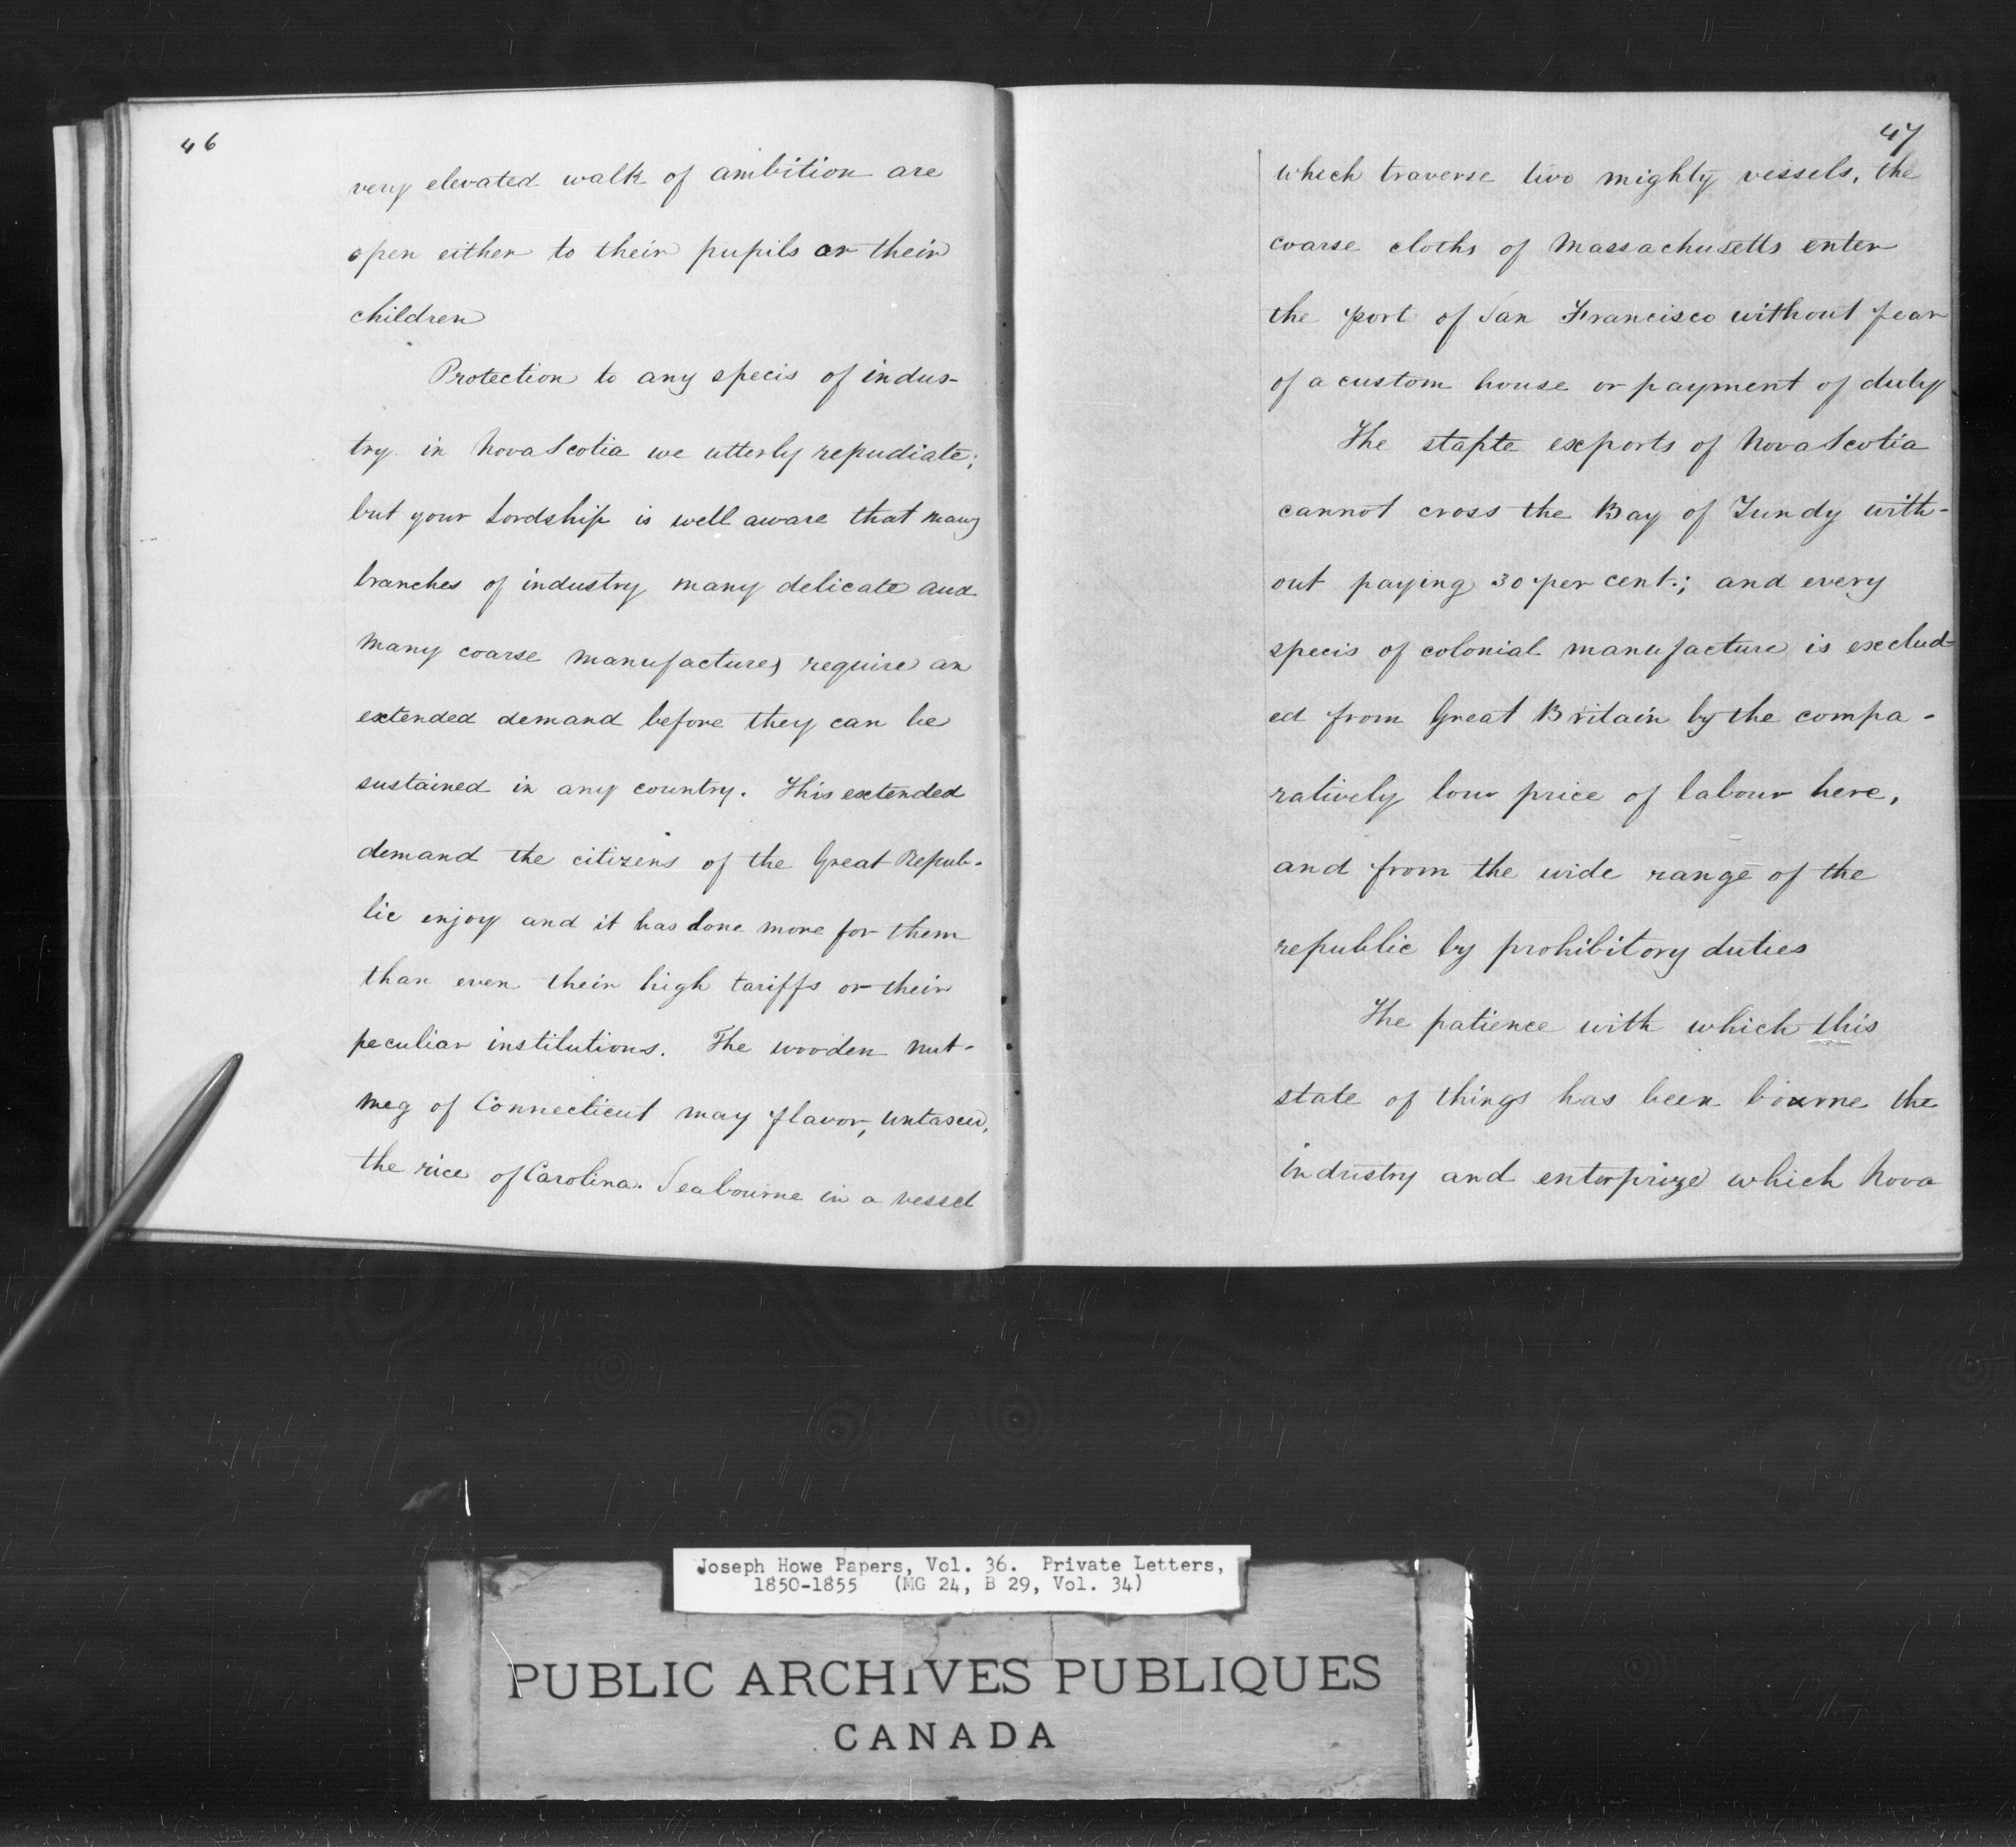 46
very elevated walk of ambition are
open either to their pupils or their
children
Protection to any specis of indus-
try in Nova Scotia we utterly repudiate;
but your Lordship is well aware that many
branches of industry many delicate and
many coarse manufactures require an
extended demand before they can be
sustained in any country. This extended
demand the citizens of the Great Repub-
lic enjoy and it has done more for them
than even their high tariffs or their
peculiar institutions. The wooden nut-
meg of Connecticut may flavor, untaxed,
the rice of Carolina. Seabourne in a vessel
47
which traverse two mighty vessels, the
coarse cloths of Massachusetts enter
the port of San Francisco without fear
of a custom house or payment of duty
The staple exports of Nova Scotia
cannot cross the Bay of Fundy with-
out paying 30 per cent.; and every
specis of colonial manufacture is exclud-
ed from Great Britain by the compa-
ratively low price of labour here,
and from the wide range of the
republic by prohibitory duties
The patience with which this
state of things has been bourne the
industry and enterprize which Nova
Joseph Howe Papers, Vol. 36. Private Letters,
1850-1855 (MG 24, B 29, Vol. 34)
PUBLIC ARCHIVES PUBLIQUES
CANADA